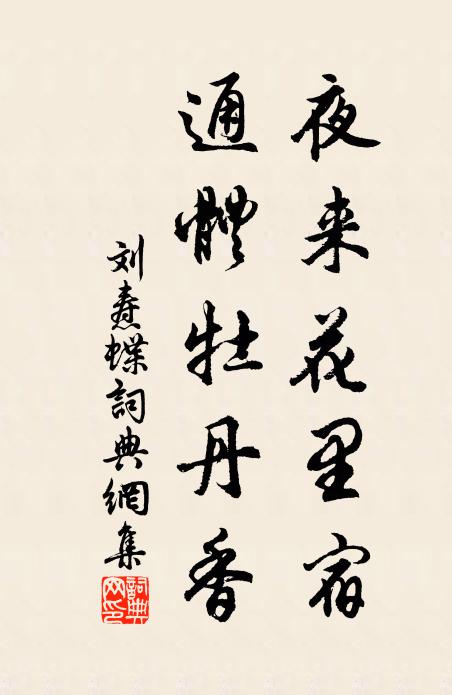 夜来花里宿
通體牡丹香
刘焘蝶詞典網集
詞典网印